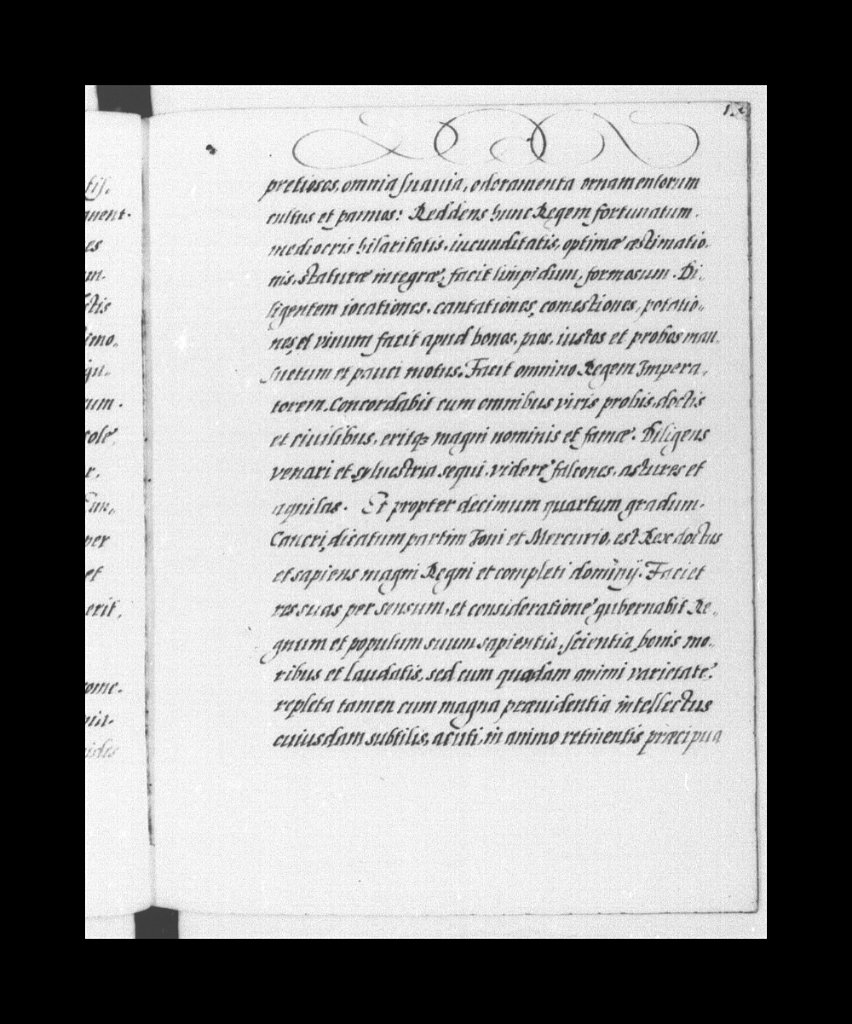 pretiosos, omnia suauia, odoramenta ornamentorum
cultus et pannos: Reddens hunc Regem fortunatum.
mediocris hilaritatis, iucunditatis, optimæ æstimatio-
nis, staturæ integræ, facit limpidum, formosum. Di-
ligentem iocationes, cantationes, comestiones, potatio-
nes, et vinum facit apud bonos, pios, iustos et probos man-
suetum et pauci motus. Facit omnino Regem Impera-
torem. Concordabit cum omnibus viris probis, doctis
et ciuilibus, eritqȝ magni nominis et famæ. Diligens
venari et syluestria sequi, videre falcones, astures et
aquilas. Et propter decimum quartum gradum
Cancri, dicatum partim Ioui et Mercurio, est Rex doctus
et sapiens magni Regni et completi dominij. Faciet
res suas per sensum, et consideratione gubernabit Re-
gnum et populum suum sapientia, scientia, bonis mo-
ribus et laudatis, sed cum quadam animi varietate.
repleta tamen cum magna præuidentia intellectus
cuiusdam subtilis, acuti, in animo retinentis præcipua
tis.
quent-
es
ctis
imo-
qui-
cum.
sole
r.
per
et
erit.